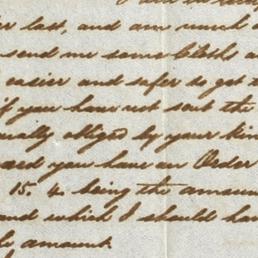 er last, and am much
send me some Cloths a
easier and safer to get t
if you have not sent the
ually obliged by your kin
eard you have an Order
15. 4. being the amoun
and which I should hav
amount